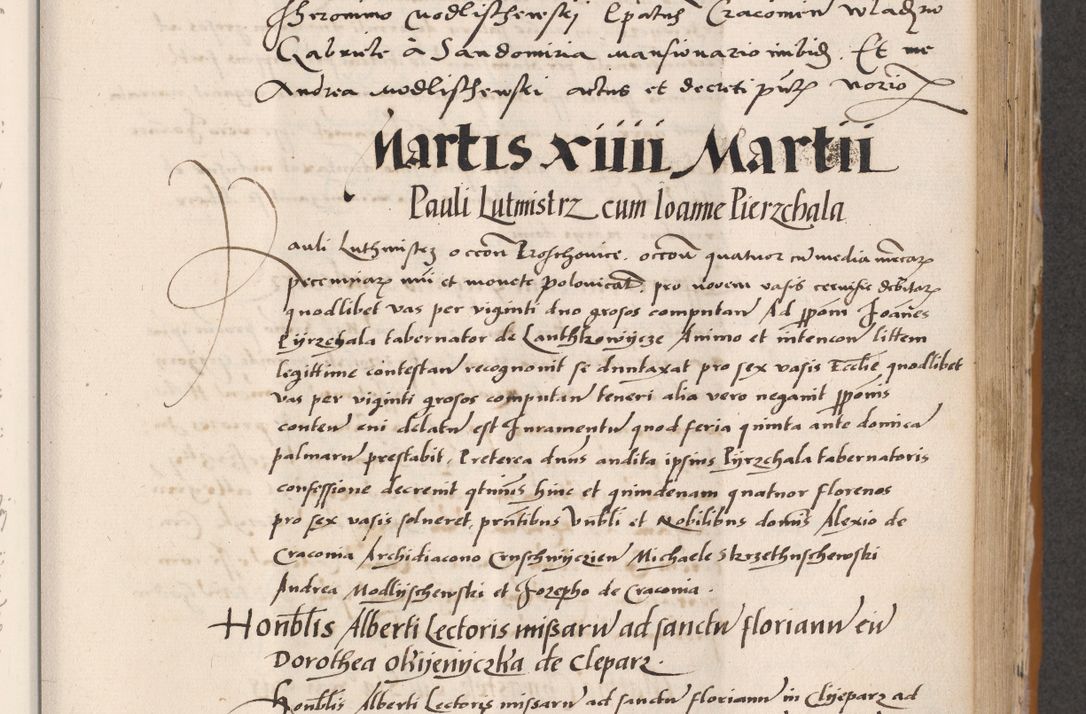 Jheronimo Modlischewski Epatus Cracovien Wladzio
Gabriele à Sandomiria mansionario imbid. Et me
Andrea Modlischewski actus et decreti pntz notrio
Martis xiiii Martii
Pauli Lutmistrz cum Ioanne Pierzchala
Pauli Luthmistrz occon Proschovice. occon quatuor cu media mrcarz
pecuniarz nui et monete polonicat. pro novem vasis cervisie debitarz
quodlibet vas per viginti duo grosos computan Ad pponi Joannes
Pyrzchala tabernator de Lanthkowycze Animo et intencon littem
legittime contestan recognovit se duntaxat pro sex vasis Ecclie quodlibet
vas per viginti grosos computan teneri alia vero negavit pponis
conten cui delatu est Juramentu quod feria quinta ante domica
palmaru prestabit. Preterea dnus audita ipsius Pyrzchala tabernatoris
confessione decrevit qtinus hinc et quindenam quatuor florenos
pro sex vasis solveret, pntibus Vnbli et Nobilibus domis Alexio de
Cracovia Archidiacono Cruschwyczien Michaele Skrzethuschewski
Andrea Modlyschewski et Jozepho de Cracovia.
Honblis Alberti Lectoris missaru ad sanctu floriann eiu
Dorothea Okyenyczka de Cleparz.
Honblis Alberti Lectoris missaru ad sanctu floriann in Clyeparz ad